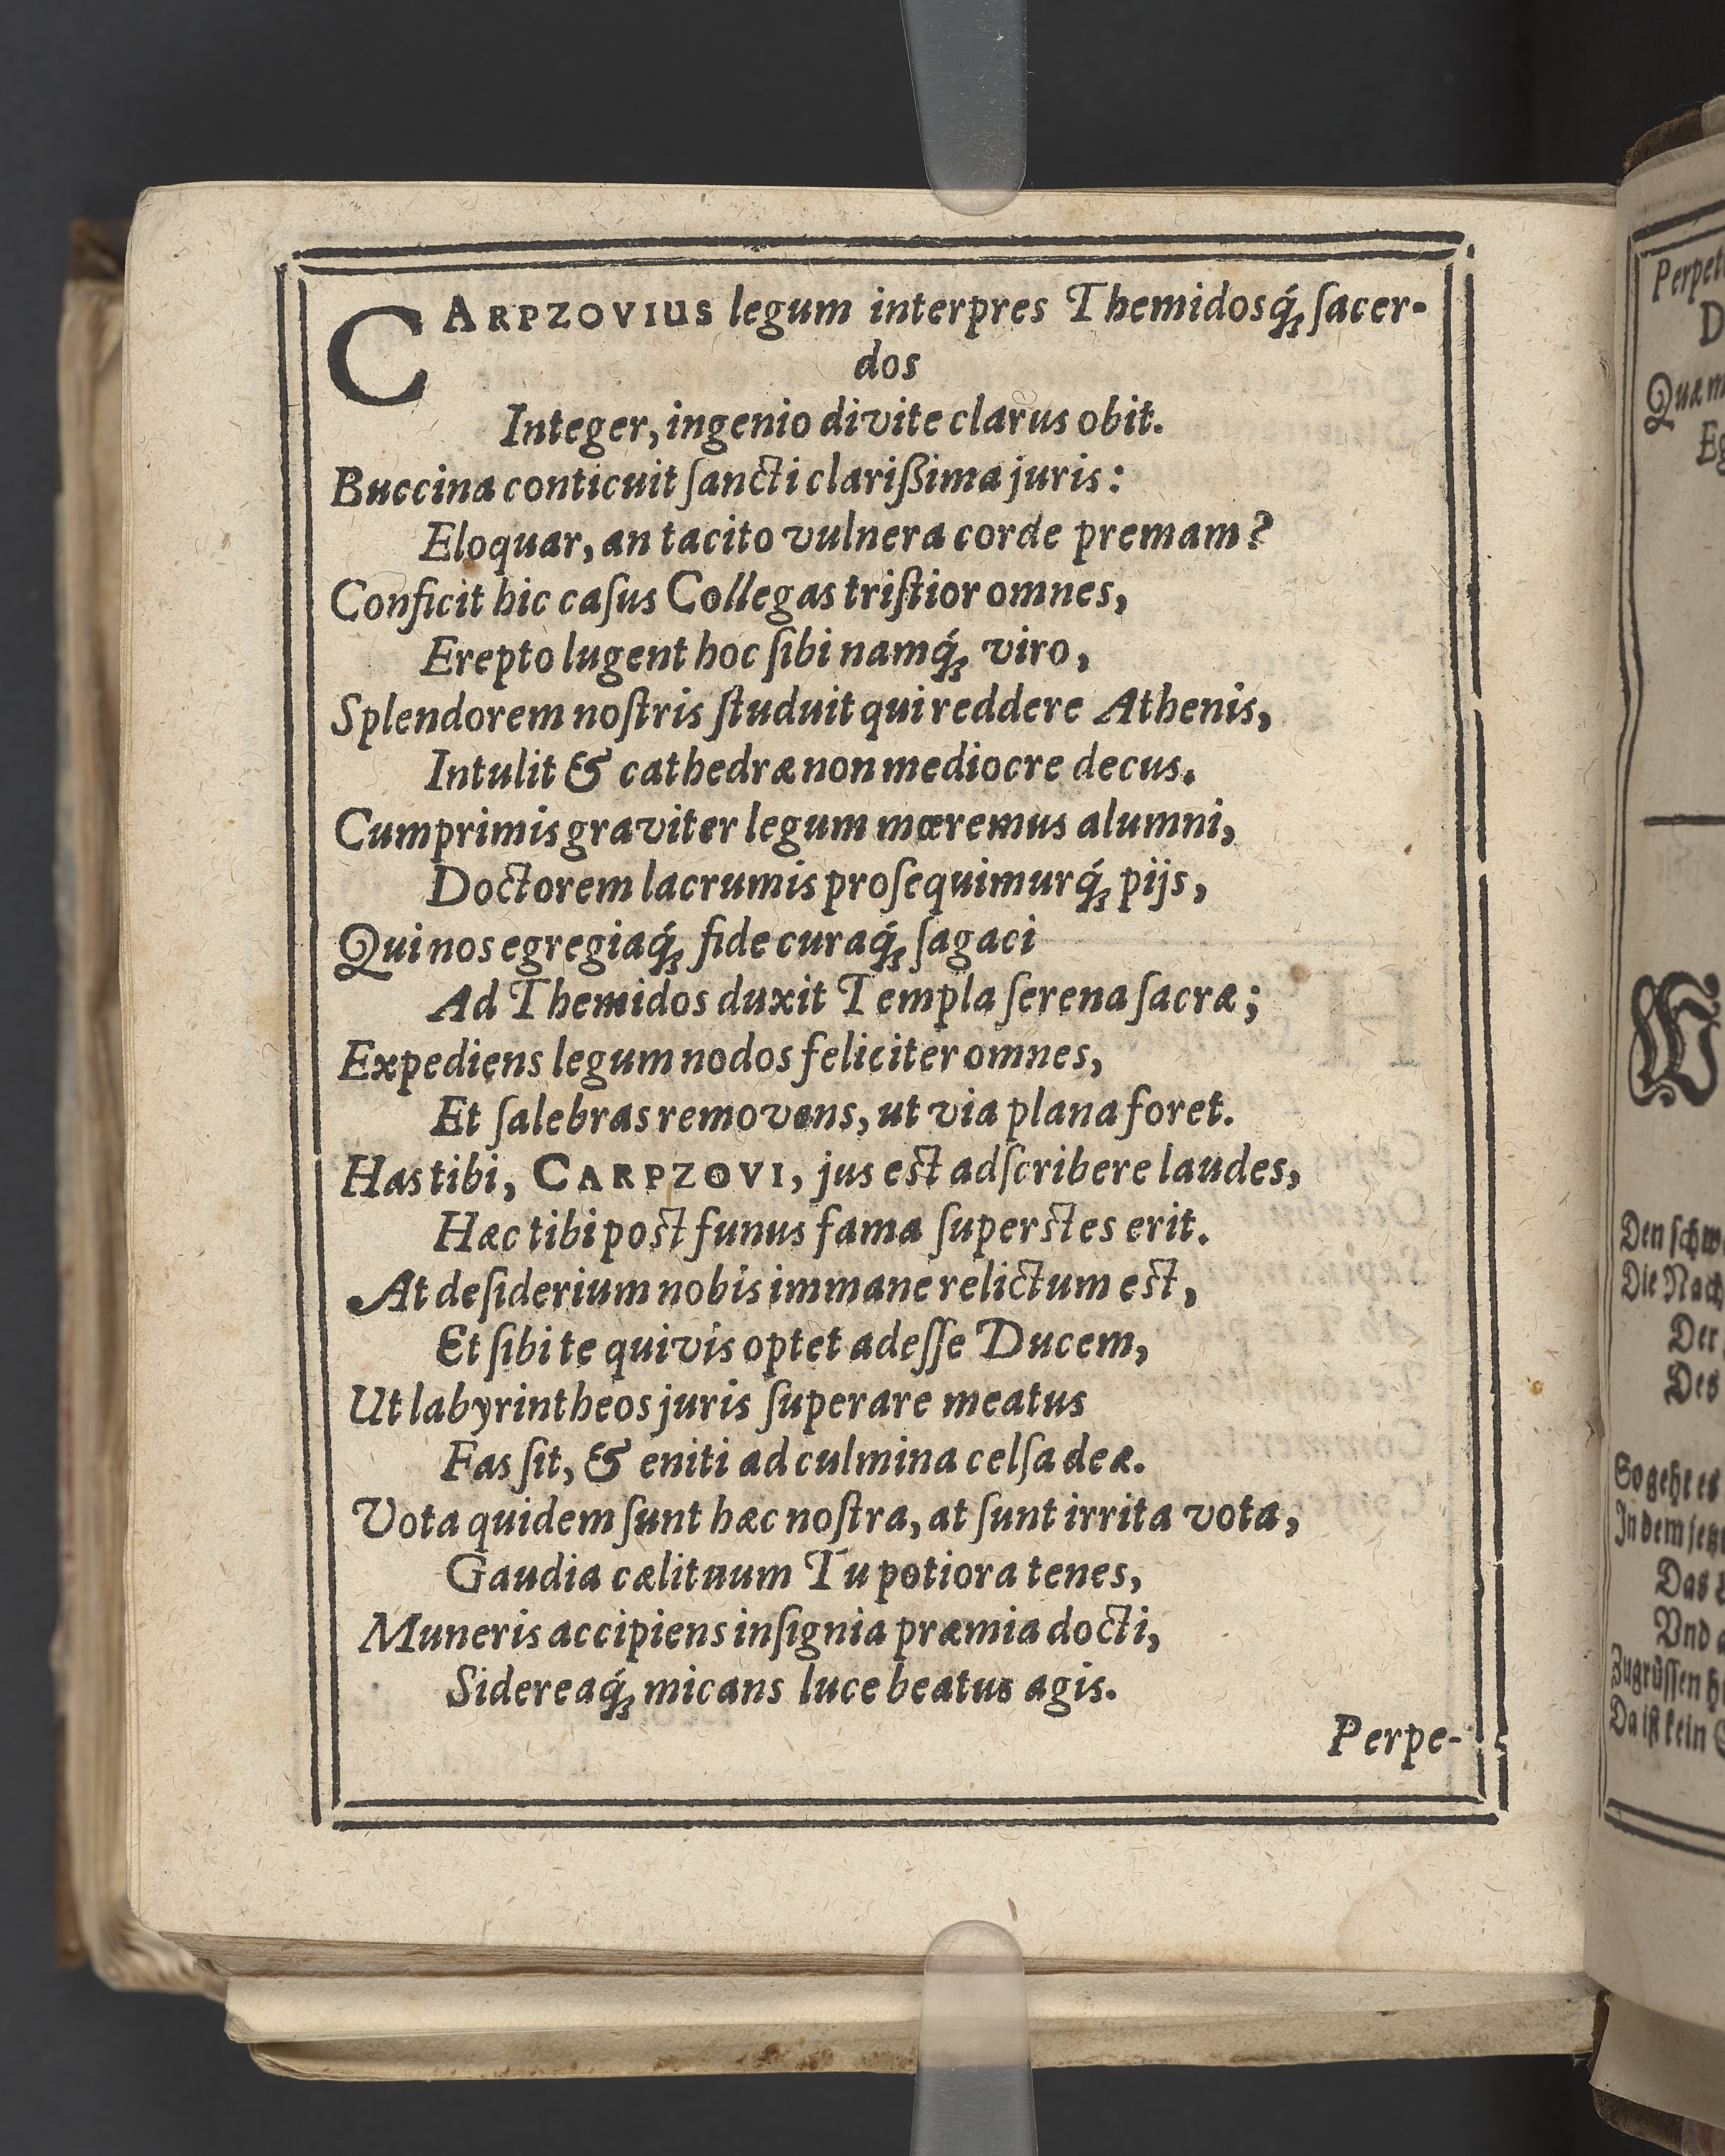 CARPZOVIUS legum interpres Themidosq́; ſacer-
dos
Integer, ingenio divite clarus obit.
Buccina conticuit ſancti clariſſima juris:
Eloquar, an tacito vulnera corde premam?
Conficit hic caſus Collegas triſtior omnes,
Erepto lugent hoc ſibi namq́; viro,
Splendorem noſtris ſtuduit qui reddere Athenis,
Intulit & cathedræ non mediocre decus.
Cumprimis graviter legum mœremus alumni,
Doctorem lacrumis proſequimurq́; pijs,
Qui nos egregiaq́; fide curaq́; ſagaci
Ad Themidos duxit Templa ſerena ſacræ;
Expediens legum nodos feliciter omnes,
Et ſalebras removens, ut via plana foret.
Has tibi, CARPZOVI, jus est adſcribere laudes,
Hæc tibi post funus fama ſuperstes erit.
At deſiderium nobis immane relictum est,
Et ſibi te quivis optet adeſſe Ducem,
Ut labyrintheos juris ſuperare meatus
Fas ſit, & eniti ad culmina celſa deæ.
Vota quidem ſunt hæc noſtra, at ſunt irrita vota,
Gaudia cælituum Tu potiora tenes,
Muneris accipiens inſignia præmia docti,
Sidereaq́; micans luce beatus agis.
Perpe-
Den
Die
Der
Des
So geht es
In dem
Das
Vnd
Zugrüſſen
Da iſt kein